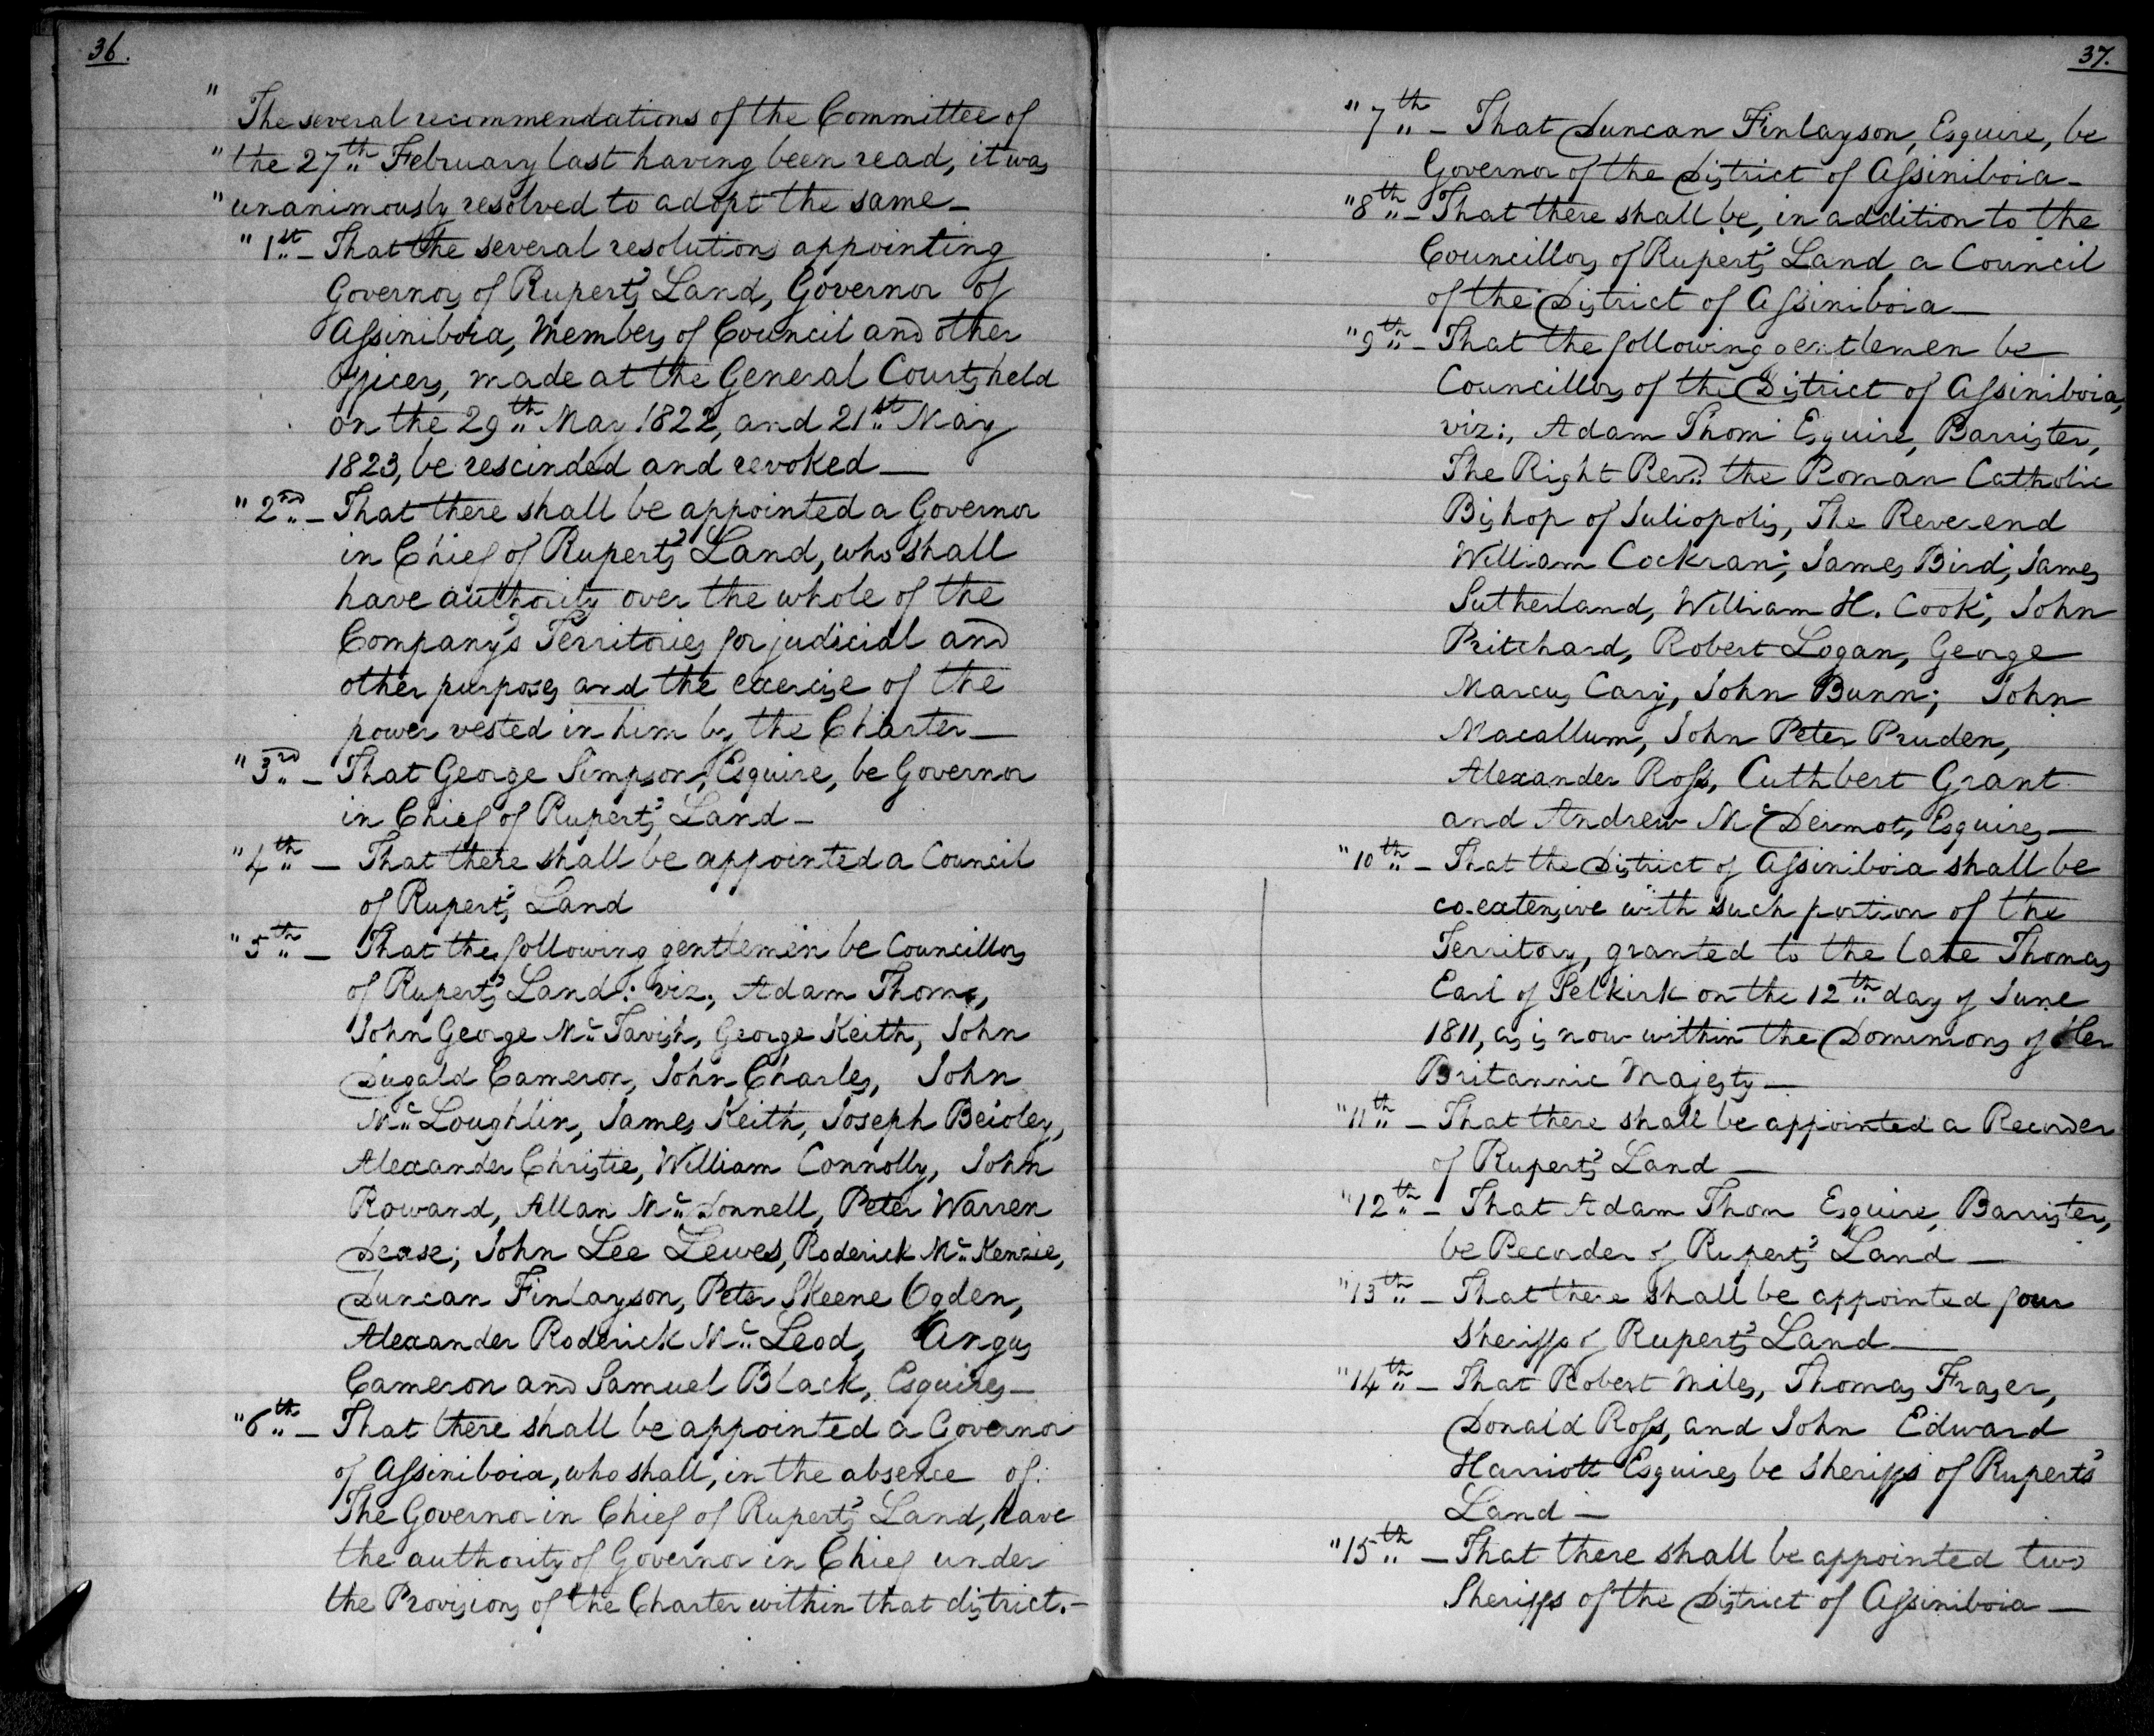 36.
" The several recommendations of the Committee of
" the 27th February last having been read, it was
" unanimously resolved to adopt the same —
" 1st — That the several resolutions appointing
Governors of Rupert's Land, Governor of
Assiniboia, Members of Council and other
Officers, made at the General Courts held
on the 29th May 1822, and 21st May
1823, be rescinded and revoked —
" 2nd — That there shall be appointed a Governor
in Chief of Rupert's Land, who shall
have authority over the whole of the
Company's Territories for judicial and
other purposes and the exercise of the
power vested in him by the Charter —
" 3rd — That George Simpson, Esquire, be Governor
in Chief of Rupert's Land —
" 4th — That there shall be appointed a Council
of Rupert's Land
" 5th — That the following gentlemen be Councillors
of Rupert's Land: viz; Adam Thom,
John George McTavish, George Keith, John
Dugald Cameron, John Charles, John
McLoughlin, James Keith, Joseph Beioley,
Alexander Christie, William Connolly, John
Rowand, Allan McDonnell, Peter Warren
Dease; John Lee Lewes, Roderick McKenzie,
Duncan Finlayson, Peter Skeene Ogden,
Alexander Roderick McLeod, Angus
Cameron and Samuel Black, Esquires —
" 6th — That there shall be appointed a Governor
of Assiniboia, who shall, in the absence of
The Governor in Chief of Rupert's Land, have
the authority of Governor in Chief under
the Provisions of the Charter within that district. —
37.
" 7th — That Duncan Finlayson, Esquire, be
Governor of the District of Assiniboia —
" 8th — That there shall be, in addition to the
Councillors of Rupert's Land a Council
of the District of Assiniboia —
" 9th — That the following gentlemen be
Councillors of the District of Assiniboia,
viz:, Adam Thom Esquire, Barrister,
The Right Revd. the Roman Catholic
Bishop of Juliopolis, The Reverend
William Cockran; James Bird; James
Sutherland, William H. Cook; John
Pritchard, Robert Logan, George
Marcus Cary, John Bunn; John
Macallum, John Peter Pruden,
Alexander Ross, Cuthbert Grant
and Andrew McDermot, Esquires —
" 10th — That the District of Assiniboia shall be
co-extensive with such portion of the
Territory, granted to the late Thomas
Earl of Selkirk on the 12th day of June
1811, as is now within the Dominions of Her
Britannic Majesty —
" 11th — That there shall be appointed a Recorder
of Rupert's Land —
" 12th — That Adam Thom Esquire, Barrister,
be Recorder of Rupert's Land —
" 13th — That there shall be appointed four
Sheriffs of Rupert's Land —
" 14th — That Robert Miles, Thomas Fraser,
Donald Ross, and John Edward
Harriott Esquires be Sheriffs of Rupert's
Land —
" 15th — That there shall be appointed two
Sheriffs of the District of Assiniboia —